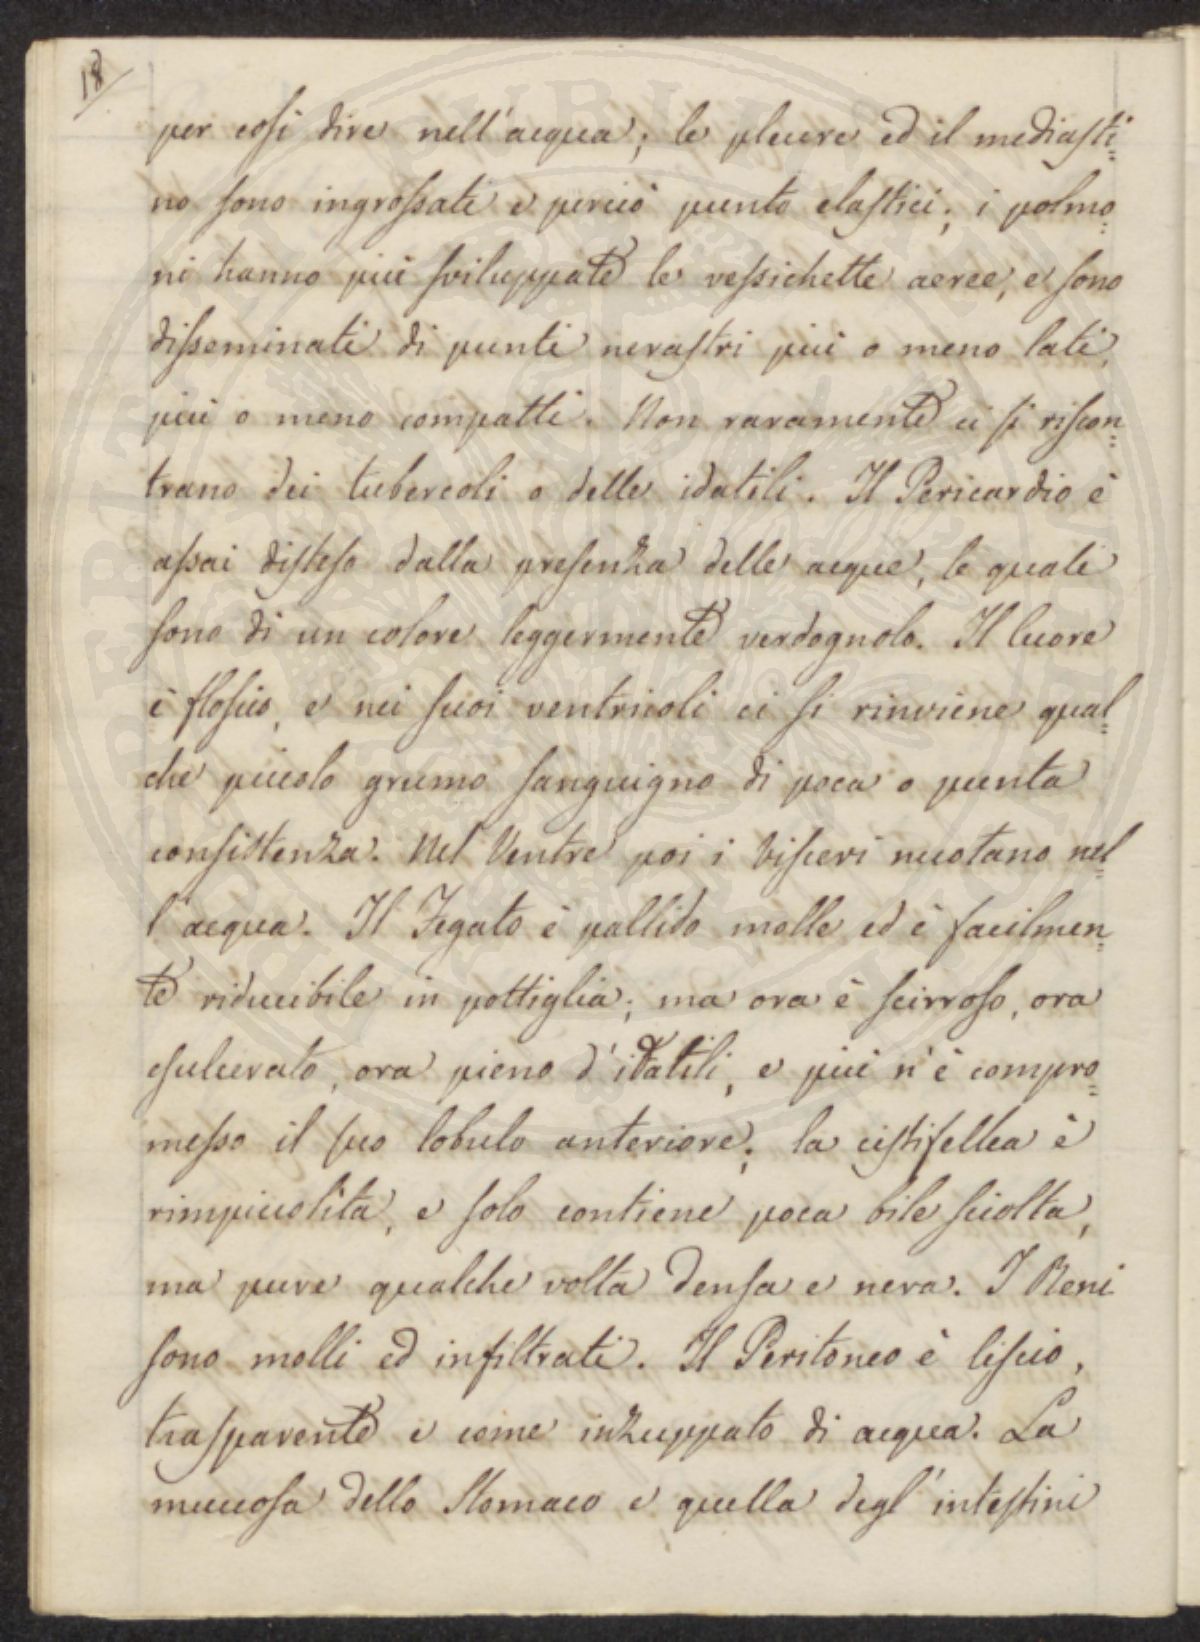 18
per così dire nell'acqua; le pleure ed il mediasti=
no sono ingrossati e perciò punto elastici; i polmo=
ni hanno più sviluppate le vessichette aeree, e sono
disseminati di punti nerastri più o meno lati,
più o meno compatti. Non raramente ci si riscon=
trano dei tubercoli o delle idatili. Il Pericardio è
assai disteso dalla presenza delle acque, le quali
sono di un colore leggermente verdognolo. Il Cuore
è floscio, e nei suoi ventricoli ci si rinviene qual=
che piccolo grumo sanguigno di poca o punta
consistenza. Nel Ventre poi i visceri nuotano nel=
l'acqua. Il Fegato è pallido molle ed è facilmen=
te riducibile in pottiglia; ma ora è scirroso, ora
esulcerato, ora pieno d'idatili, e più n'è compro=
messo il suo lobulo anteriore; la cistifellea è
rimpiccolita, e solo contiene poca bile sciolta,
ma pure qualche volta densa e nera. I Reni
sono molli ed infiltrati. Il Peritoneo è liscio,
trasparente e come inzuppato di acqua. La
muccosa dello Stomaco e quella degl'intestini